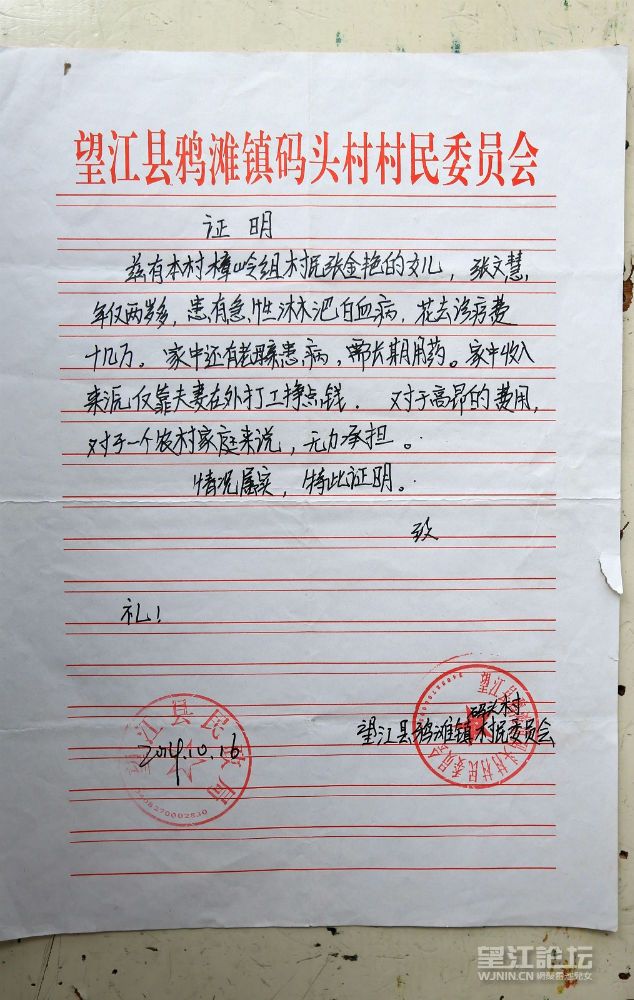 望江县鸦滩镇码头村村民委员会
证明
兹有本村樟岭组村民张金艳的女儿，张文慧，
年仅两岁多，患有急性淋巴白血病，花去诊疗费
十几万。家中还有老人患病，需长期用药。家中收入
来源仅靠夫妻在外打工挣点钱．对于高昂的费用，
对于一个农村家庭来说，无力承担。
情况属实，特此证明。
致
礼！
望江县鸦滩镇码头村村民委员会
2014.10.16
望江县民政局
3408270002830
望江县鸦滩镇码头村村民委员会
望江论坛
WJNIN.CN 網聚雷池兒女